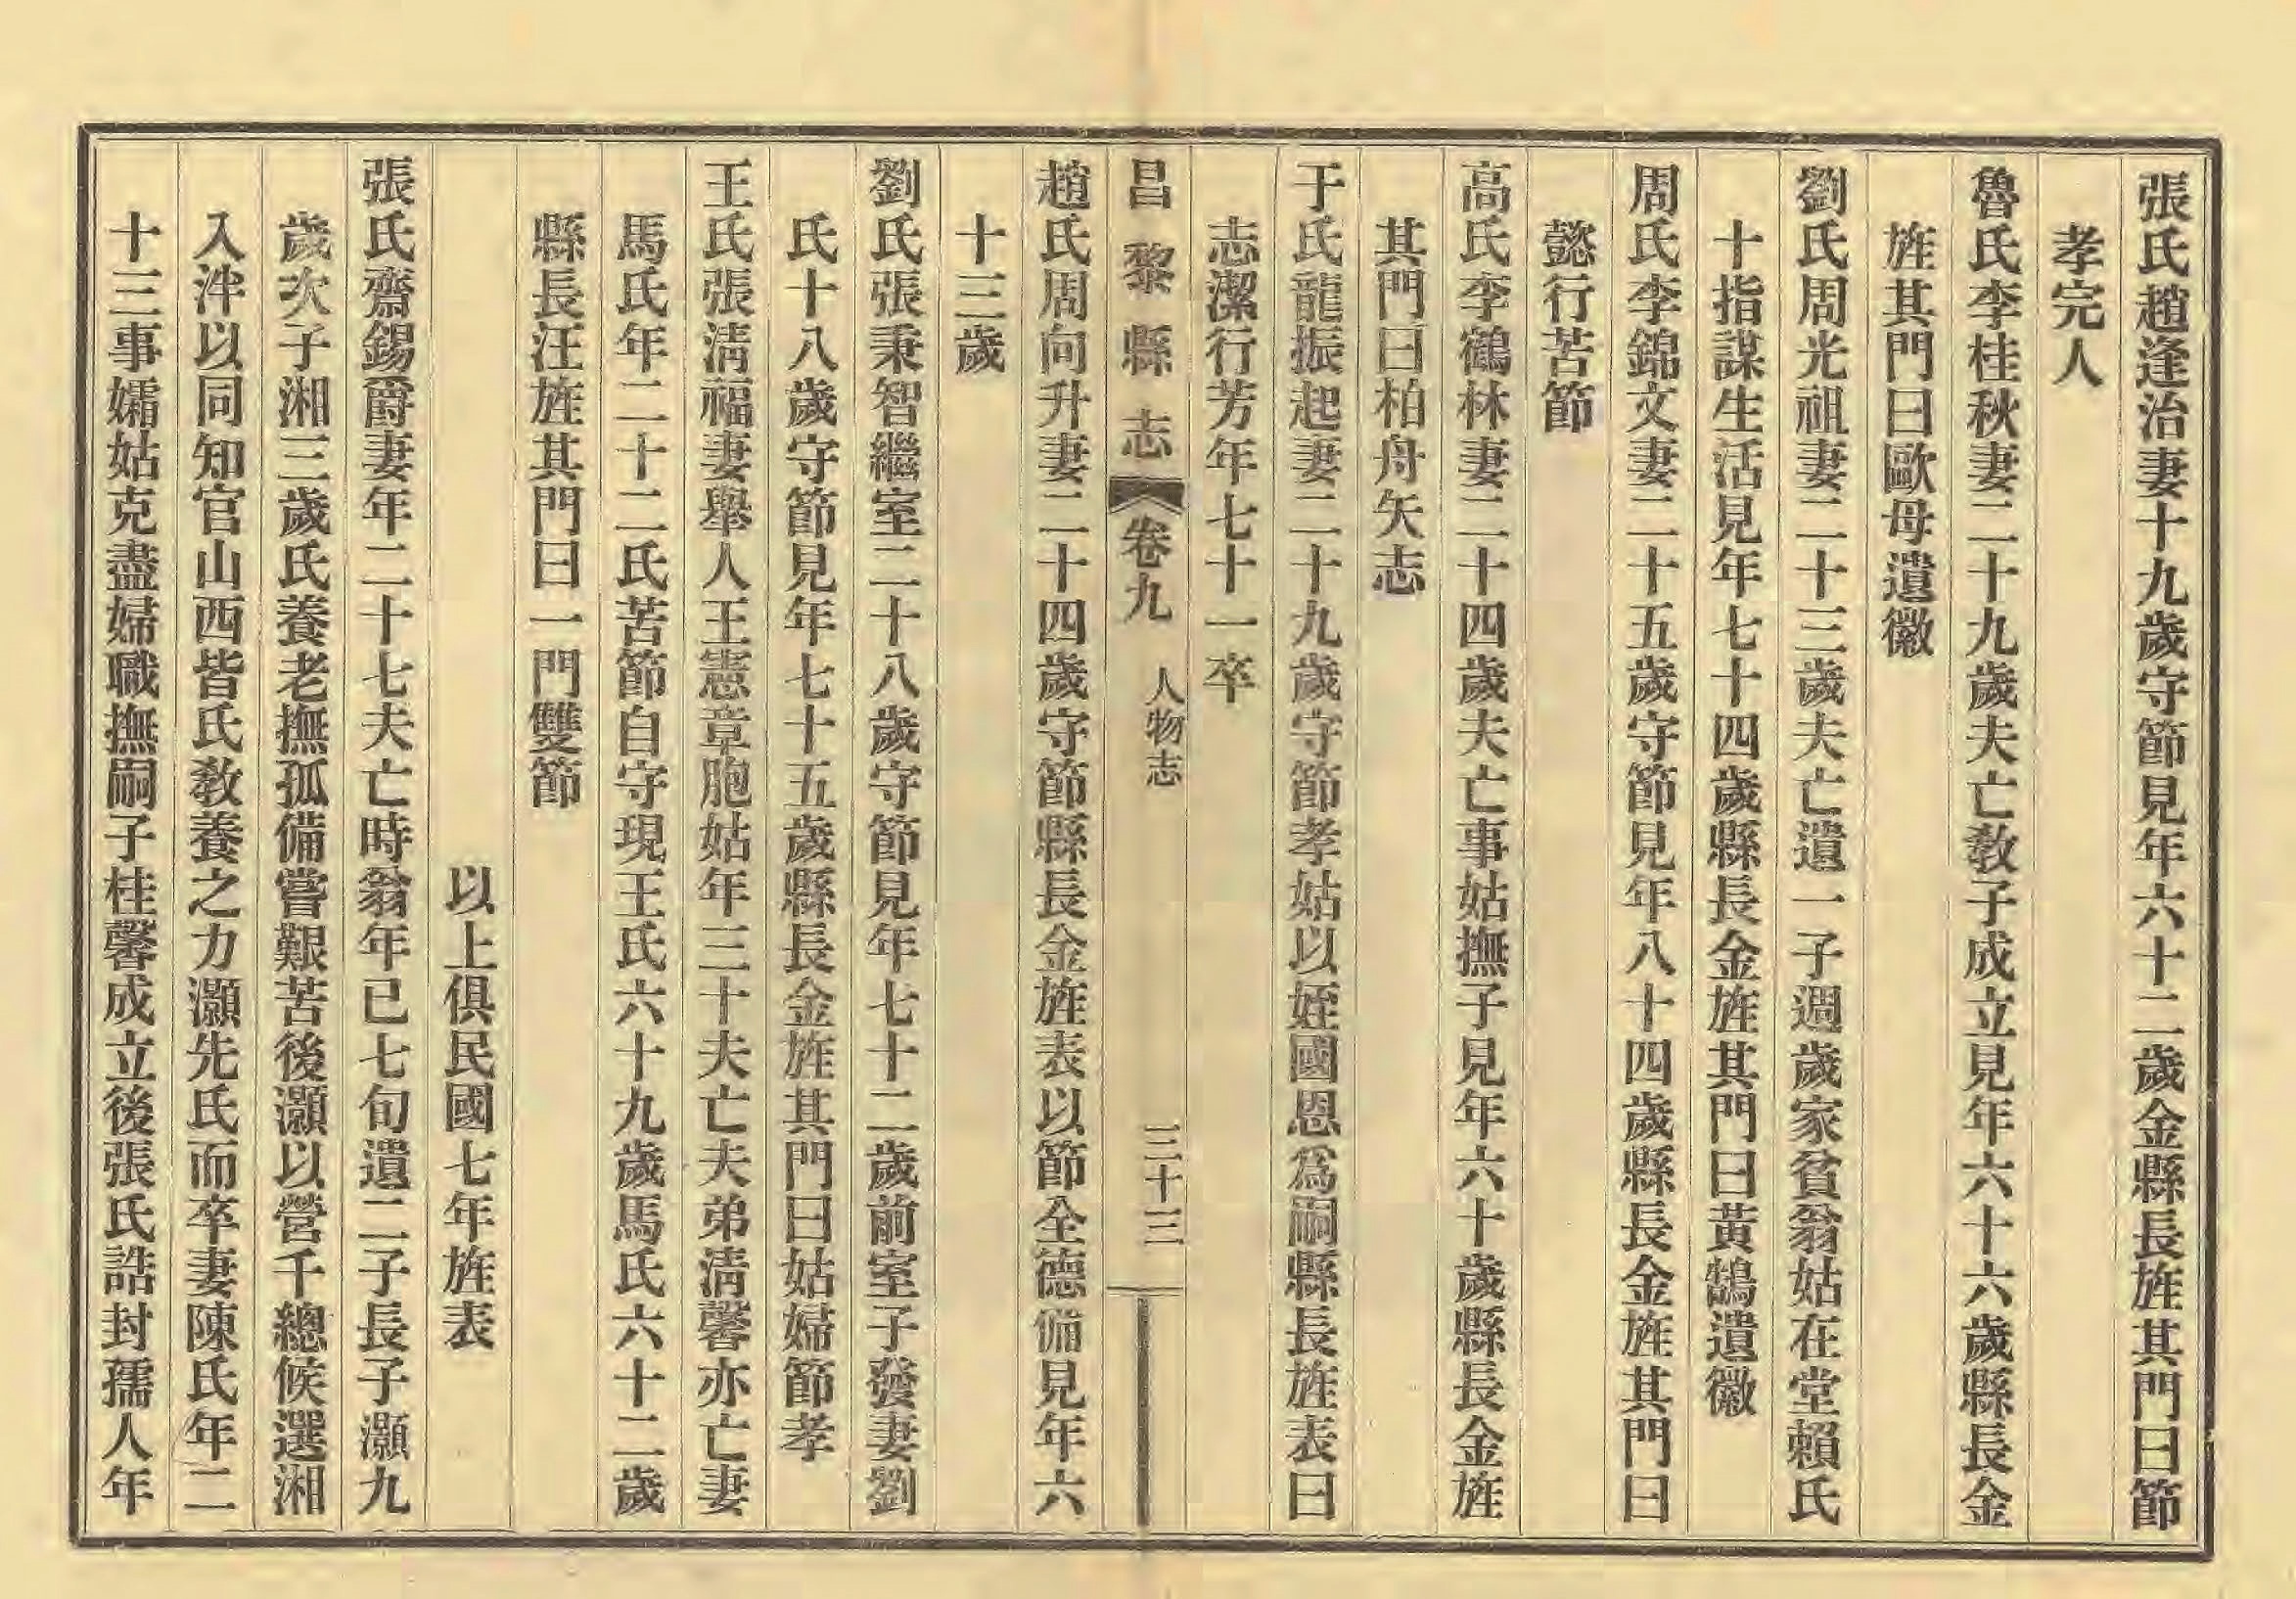 張氏趙逢治妻十九歲守節見年六十二歲金縣長旌其門曰節
孝完人
魯氏李桂秋妻二十九歲夫亡敎子成立見年六十六歲縣長金
旌其門曰歐母遺徽
劉氏周光祖妻二十三歲夫亡遺一子週歲家貧翁姑在堂賴氏
十指謀生活見年七十四歲縣長金旌其門曰黃鵠遺徽
周氏李錦文妻二十五歲守節見年八十四歲縣長金旌其門曰
懿行苦節
高氏李鶴林妻二十四歲夫亡事姑撫子見年六十歲縣長金旌
其門曰柏舟矢志
于氏龍振起妻二十九歲守節孝姑以姪國恩爲嗣縣長旌表曰
志潔行芳年七十一卒
昌黎縣志 卷九 人物志 三十三
趙氏周向升妻二十四歲守節縣長金旌表以節全德備見年六
十三歲
劉氏張秉智繼室二十八歲守節見年七十二歲前室子發妻劉
氏十八歲守節見年七十五歲縣長金旌其門曰姑婦節孝
王氏張淸福妻舉人王憲章胞姑年三十夫亡夫弟淸馨亦亡妻
馬氏年二十二氏苦節自守現王氏六十九歲馬氏六十二歲
縣長汪旌其門曰一門雙節
以上俱民國七年旌表
張氏齋錫爵妻年二十七夫亡時翁年已七旬遺二子長子灝九
歲次子湘三歲氏養老撫孤備嘗艱苦後灝以營千總候選湘
入泮以同知官山西皆氏敎養之力灝先氏而卒妻陳氏年二
十三事孀姑克盡婦職撫嗣子桂馨成立後張氏誥封孺人年